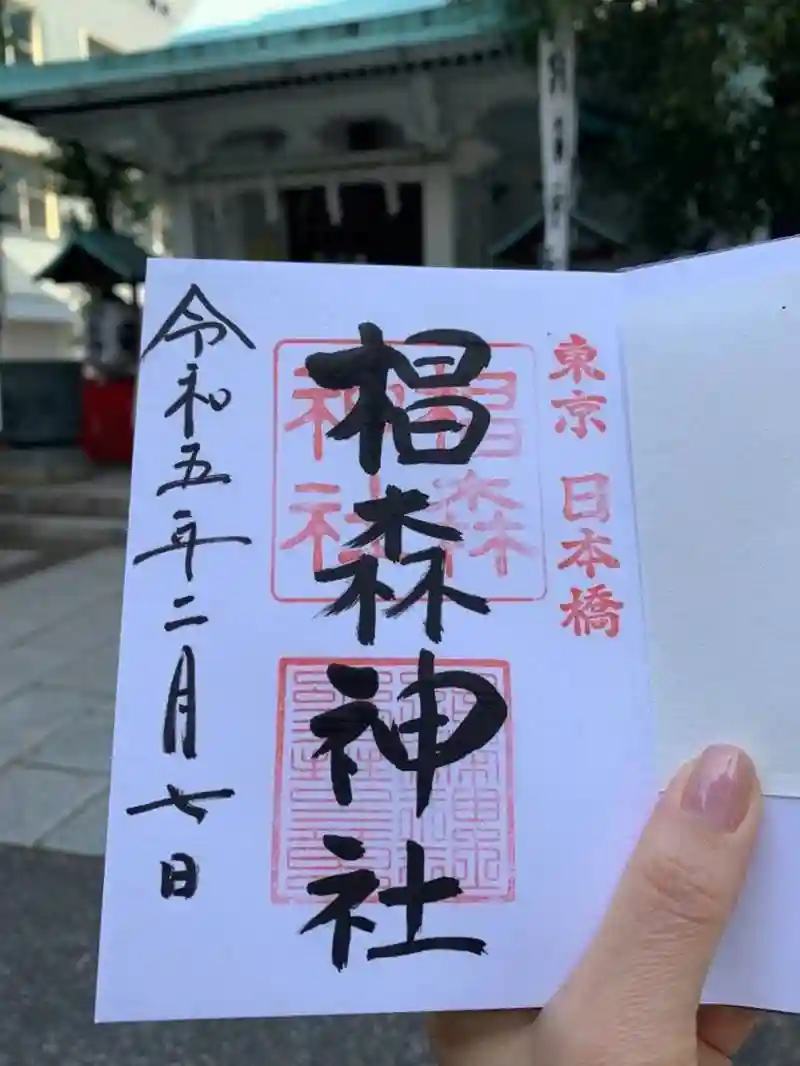 東京 日本橋
椙森神社
椙森
神社
令和五年二月七日